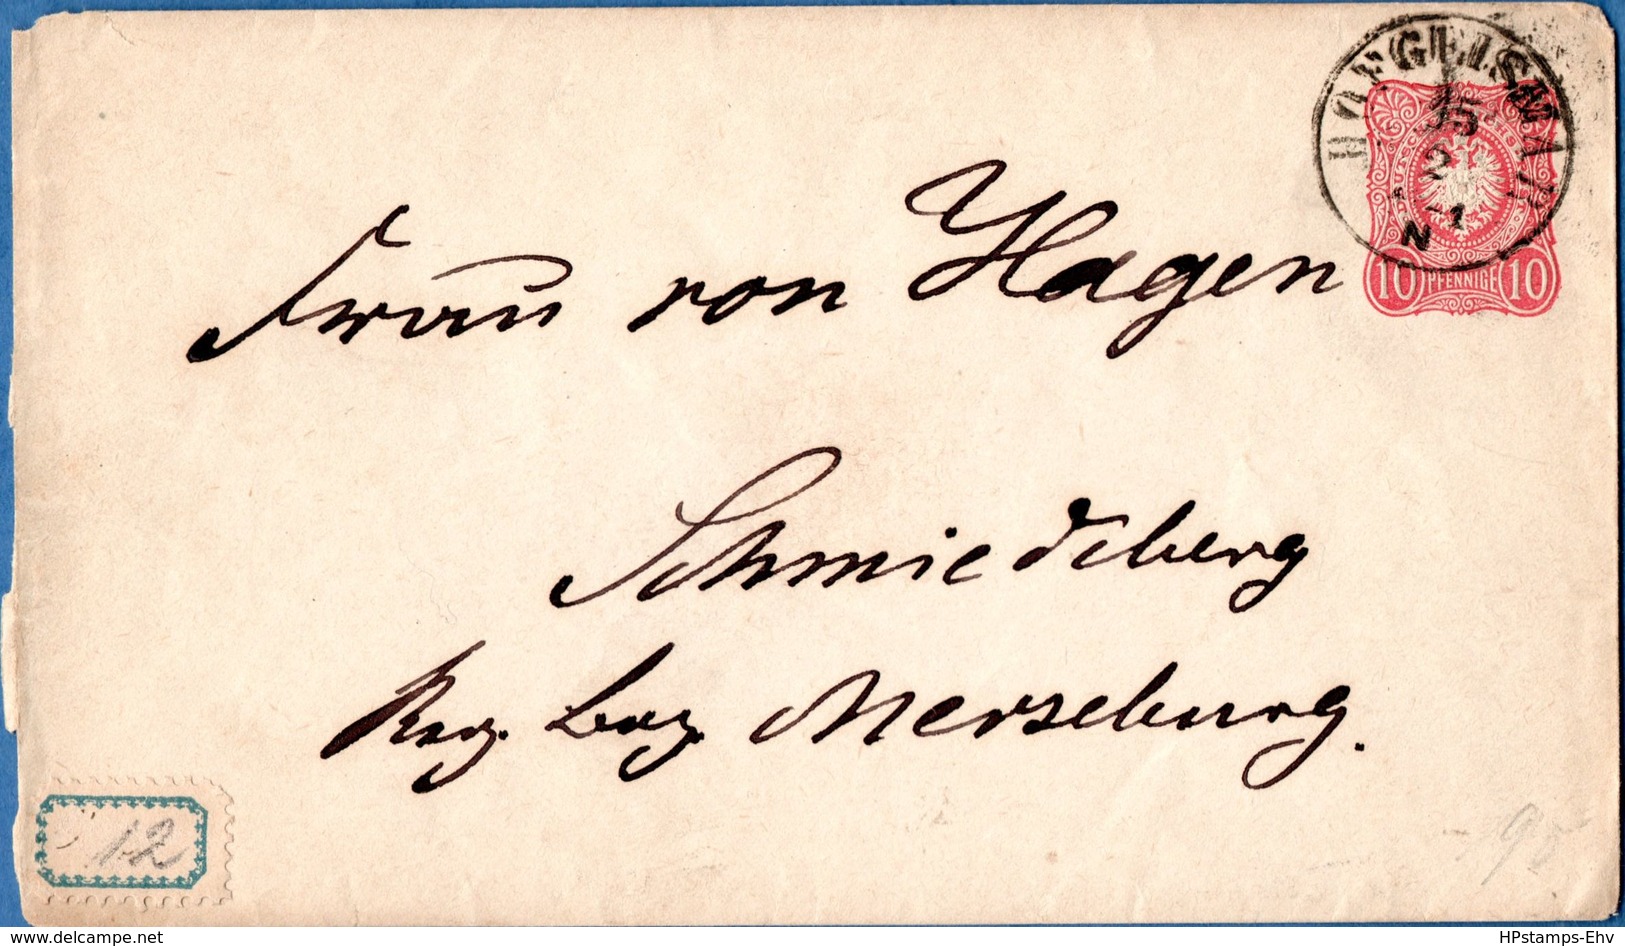 HOFGEISMAR
15
2
-1
N
DEUTSCHE REICHSPOST
10 PFENNIGE 10
Frau von Hagen
Schmiedeberg
Reg. Bez. Merseburg.
12
www.delcampe.net
HPstamps-Ehv